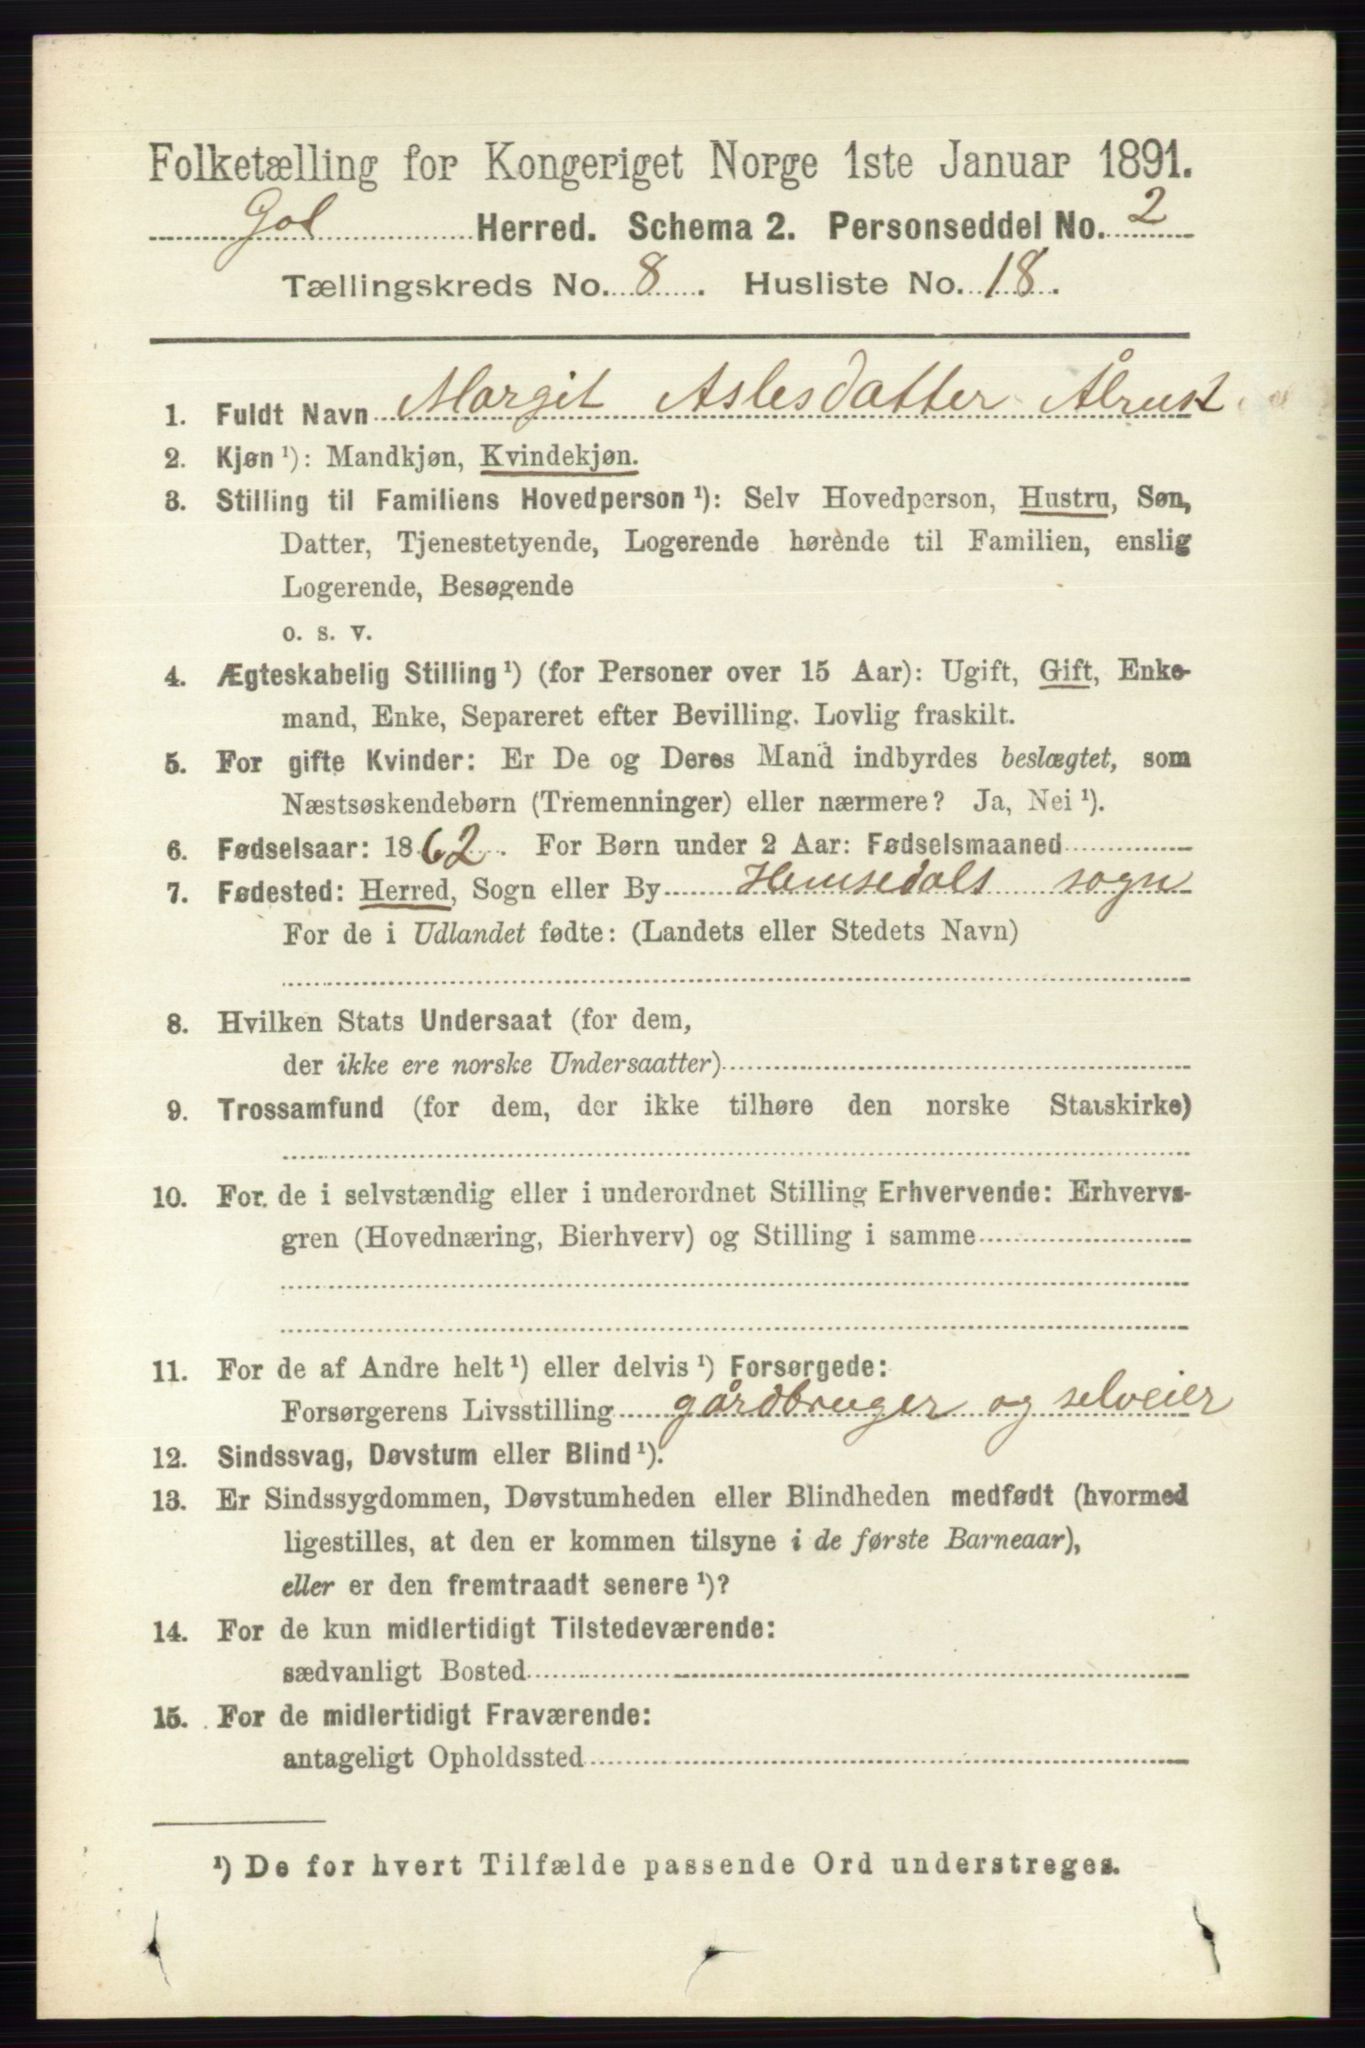 Folketælling for Kongeriget Norge 1ste Januar 1891.
Gol Herred. Schema 2. Personseddel No. 2
Tællingskreds No. 8. Husliste No. 18.
1. Fuldt Navn Margit Aslesdatter Ålrust
2. Kjøn ¹): Mandkjøn, Kvindekjøn.
3. Stilling til Familiens Hovedperson ¹): Selv Hovedperson, Hustru, Søn,
Datter, Tjenestetyende, Logerende hørende til Familien, enslig
Logerende, Besøgende
o. s. v.
4. Ægteskabelig Stilling ¹) (for Personer over 15 Aar): Ugift, Gift, Enke-
mand, Enke, Separeret efter Bevilling. Lovlig fraskilt.
5. For gifte Kvinder: Er De og Deres Mand indbyrdes beslægtet, som
Næstsøskendebørn (Tremenninger) eller nærmere? Ja, Nei ¹).
6. Fødselsaar: 1862. For Børn under 2 Aar: Fødselsmaaned
7. Fødested: Herred, Sogn eller By Hemsedals sogn
For de i Udlandet fødte: (Landets eller Stedets Navn)
8. Hvilken Stats Undersaat (for dem,
der ikke ere norske Undersaatter)
9. Trossamfund (for dem, der ikke tilhøre den norske Statskirke)
10. For de i selvstændig eller i underordnet Stilling Erhvervende: Erhvervs-
gren (Hovednæring, Bierhverv) og Stilling i samme
11. For de af Andre helt ¹) eller delvis ¹) Forsørgede:
Forsørgerens Livsstilling gårdbruger og selveier
12. Sindssvag, Døvstum eller Blind ¹).
13. Er Sindssygdommen, Døvstumheden eller Blindheden medfødt (hvormed
ligestilles, at den er kommen tilsyne i de første Barneaar),
eller er den fremtraadt senere ¹)?
14. For de kun midlertidigt Tilstedeværende:
sædvanligt Bosted
15. For de midlertidigt Fraværende:
antageligt Opholdssted
¹) De for hvert Tilfælde passende Ord understreges.